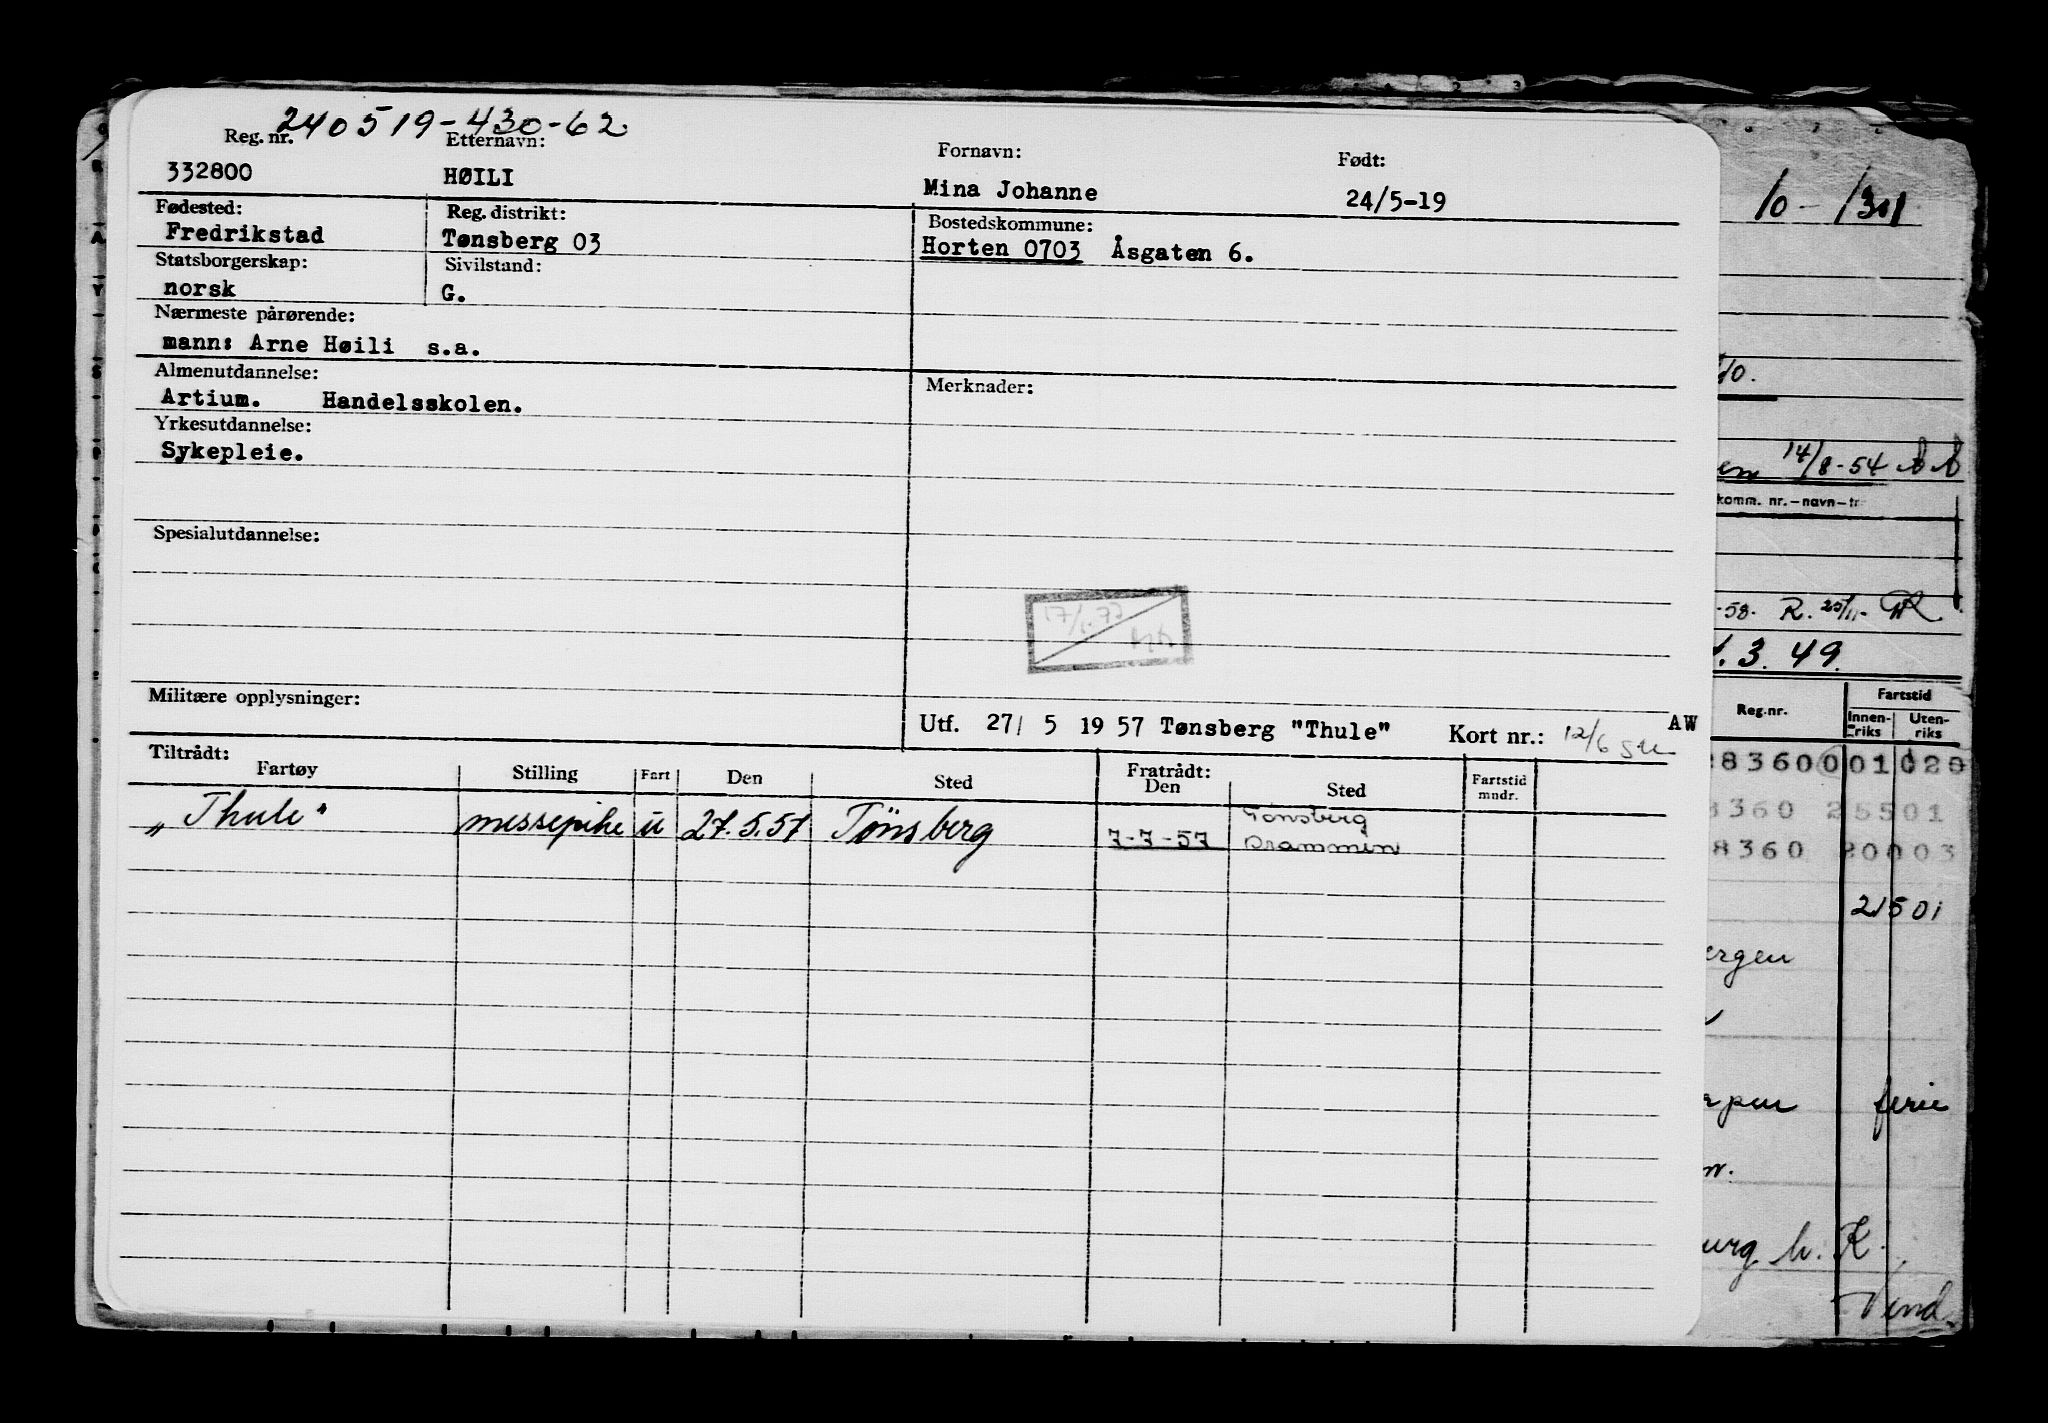 240519-430-62
Reg. nr. Etternavn: Fornavn: Født:
332800 HØILI Mina Johanne 24/5-19
Fødested: Reg. distrikt: Bostedskommune:
Fredrikstad Tønsberg 03 Horten 0703 Åsgaten 6.
Statsborgerskap: Sivilstand:
norsk G.
Nærmeste pårørende:
mann: Arne Høili s.a.
Almenutdannelse: Merknader:
Artium. Handelsskolen.
Yrkesutdannelse:
Sykepleie.
Spesialutdannelse:
Militære opplysninger:
Utf. 27/ 5 19 57 Tønsberg "Thule" Kort nr.: 12/6 AW
Tiltrådt: Fratrådt:
Fartøy Stilling Fart Den Sted Den Sted Fartstid mndr.
„Thule" messepike u 27.5.57 Tönsberg 7-7-57 Tönsberg
Drammen
10-
14/8-54
komm. nr.-navn-tr
-58. R. 25/11-
. 3. 49.
Reg.nr. Fartstid
Innen-riks Uten-riks
8360
8360
21501
ergen
ferie
urg h. K.